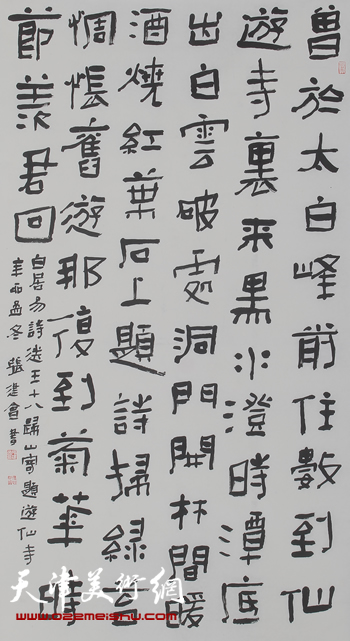 曾於太白峰前住數到仙
遊寺裏來黑水澄時潭底
出白雲破處洞門開林間暖
酒燒紅葉石上題詩掃綠苔
惆悵舊遊那復到菊華時
節羨君回
白居易詩送王十八歸山寄題遊仙寺
辛丑孟冬張建會書
天津美術網
www.022meishu.com